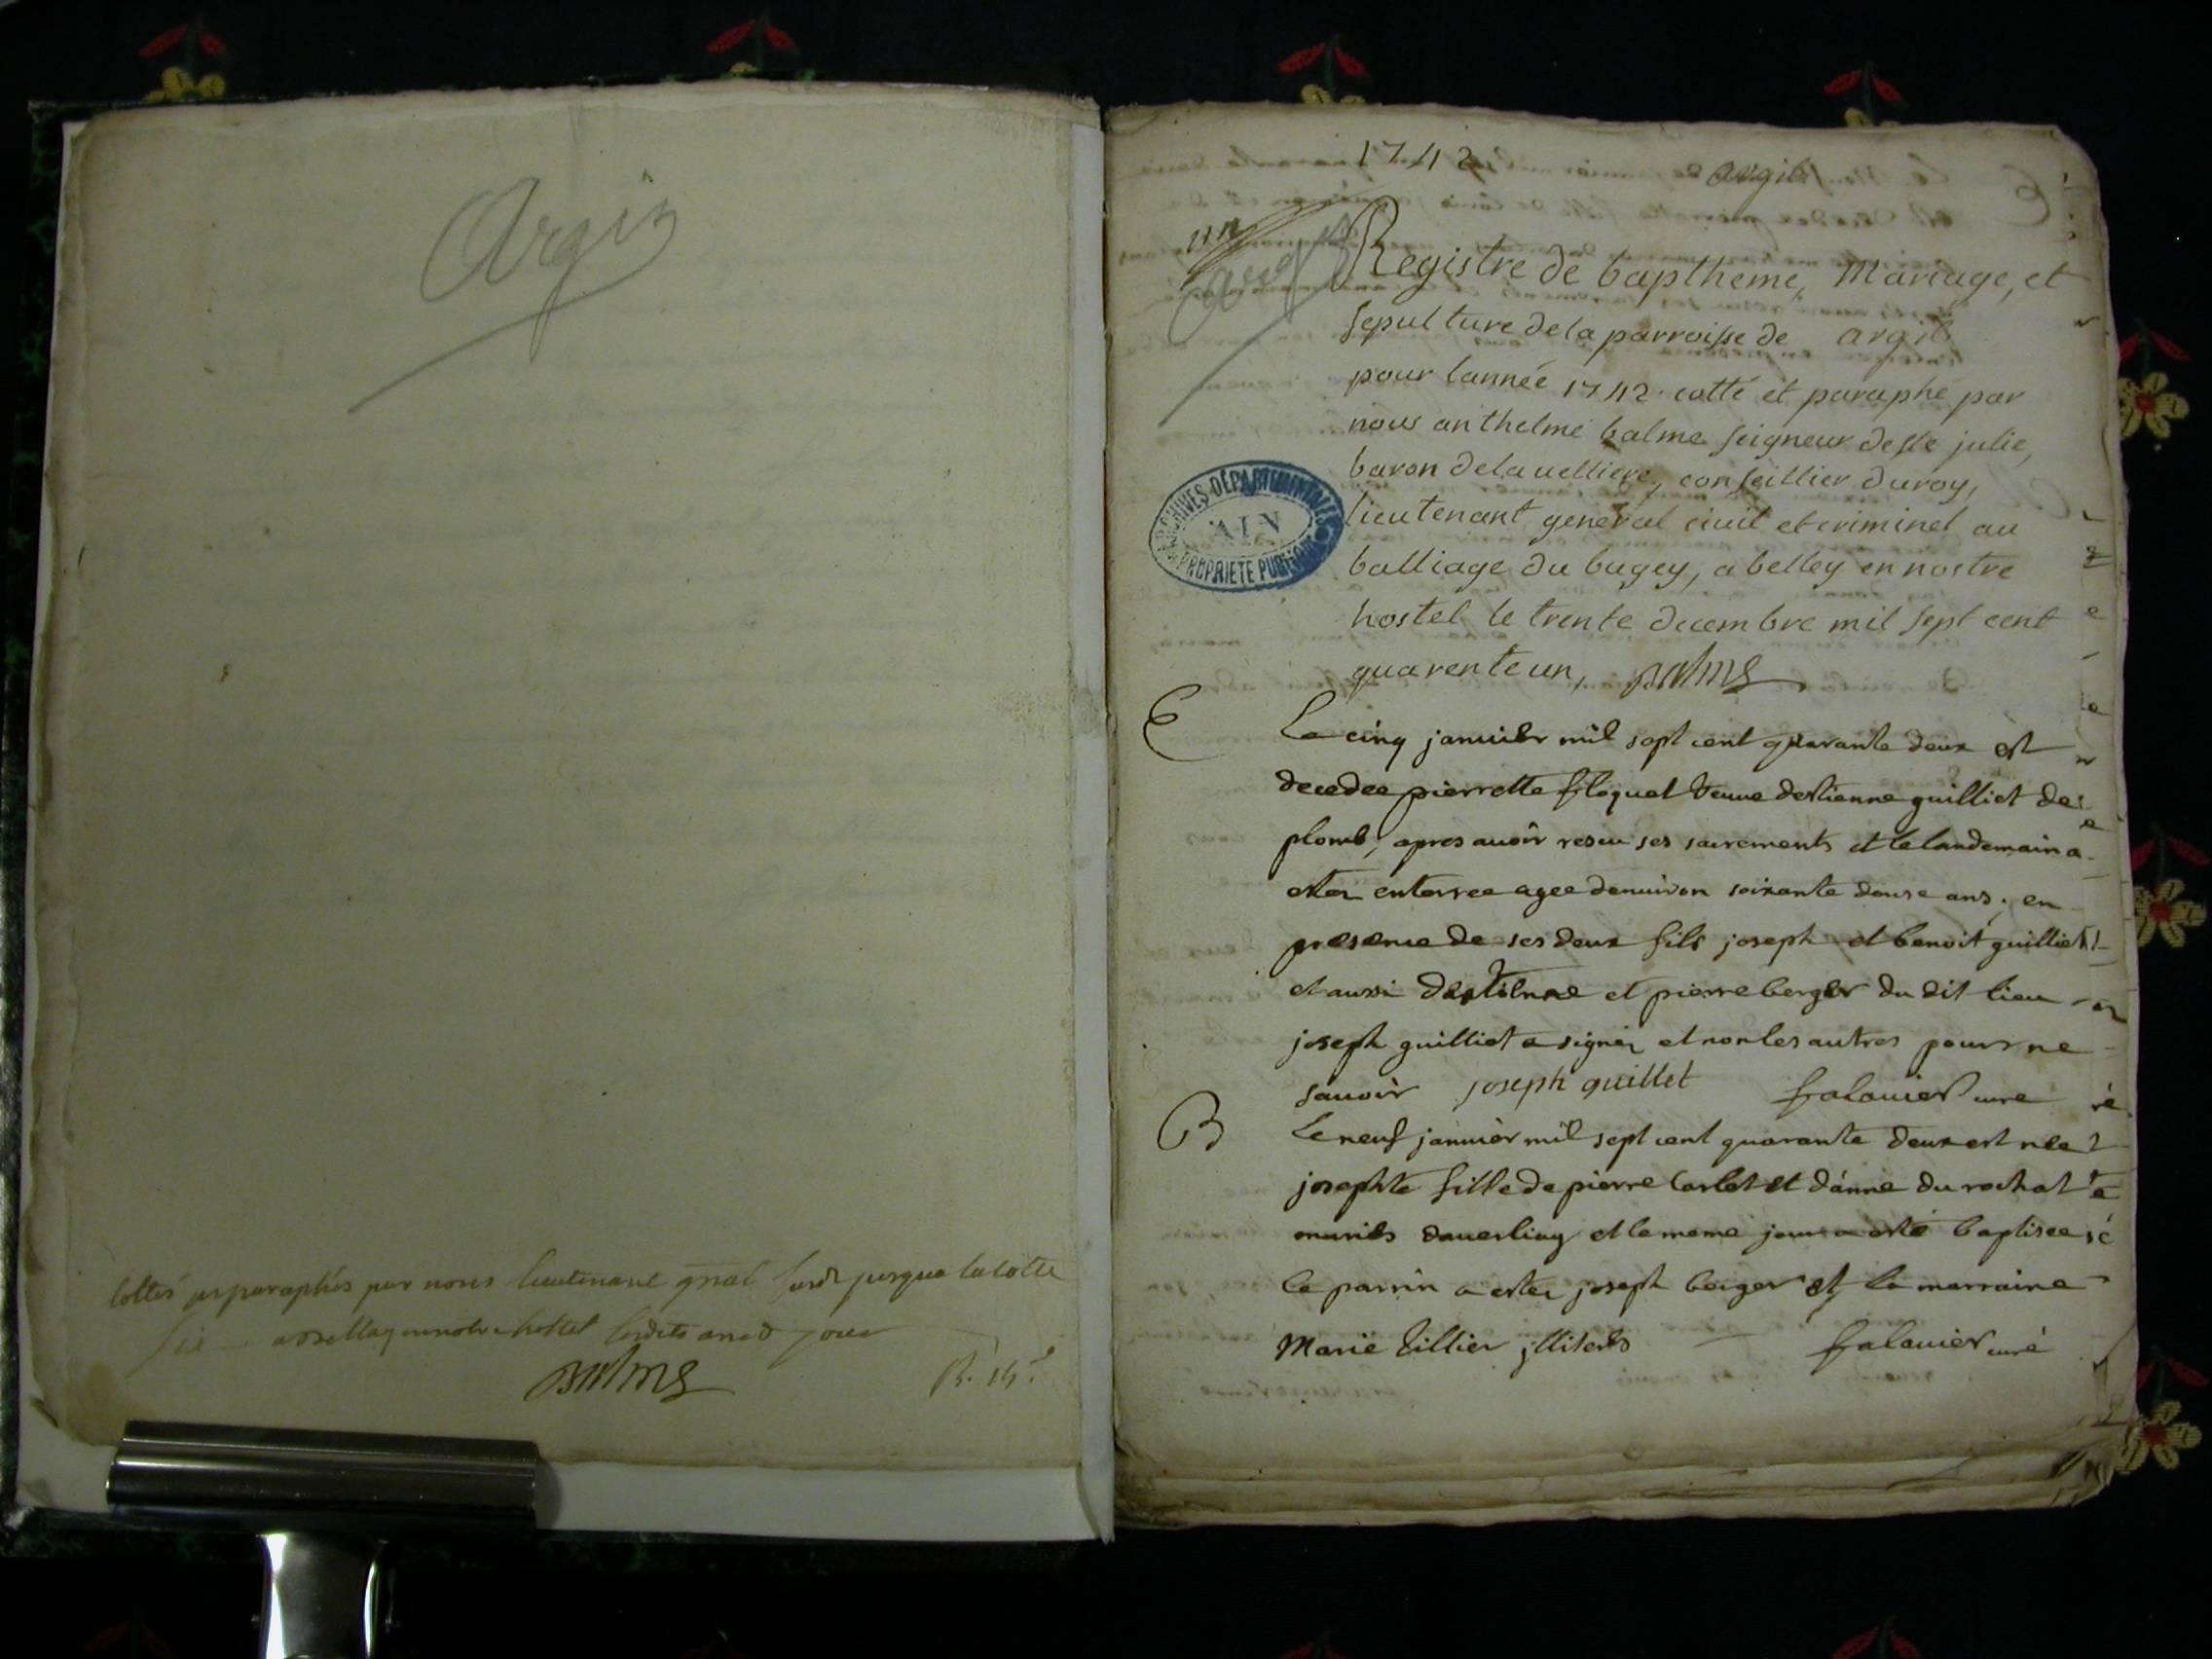 Argis
Cottés et paraphés par nous lieutenant gnal susdt jusqua la cotte
six a Belley en notre hostel lesdits an et jour
Balme
1742
argil
Argis
Registre de baptheme, Mariage, et
sepulture de la parroisse de argil
pour lannée 1742. cotté et paraphé par
nous anthelme balme seigneur de ste julie,
baron de la uelliere, conseillier du roy,
lieutenant general ciuil et criminel au
balliage du bugey, a belley en nostre
hostel le trente decembre mil sept cent
quarente un, Balme
ARCHIVES DÉPARTEMENTALES
AIN
PROPRIETE PUBLIQUE
E
Le cinq januier mil sept cent quarante deux est
decedee pierrette floquet veuue destienne guilliet de
plomb, apres auoir reseu ses sacrements et le landemain a
estez enterree agee denuiron soixante douse ans, en
presence de ses deux fils joseph et benoit guilliet
et aussi destienne et pierre berger du dit lieu
joseph guilliet a signez et non les autres pour ne
sauoir joseph guillet falauier curé
B
Le neuf januier mil sept cent quarante deux est nee
josephte fille de pierre Carlet et d'anne du rochat
mariés dauerliay et le meme jour a esté baptisee
le parrin a estez joseph berger et la marraine
Marie tillier jlliterés falauier curé